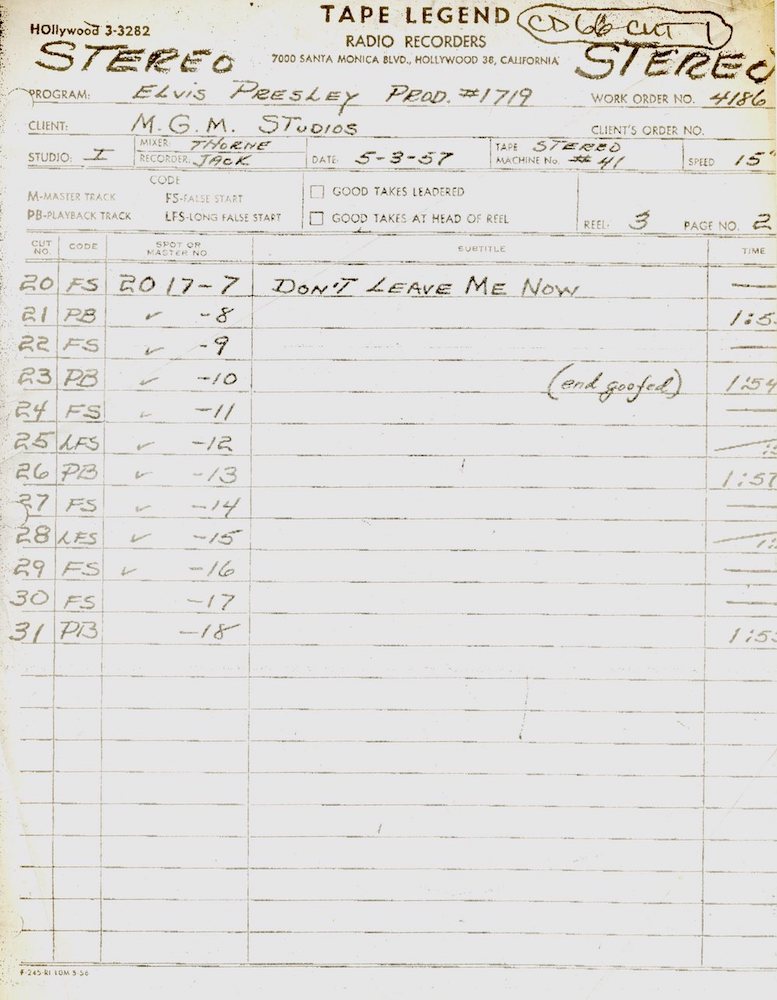 TAPE LEGEND CD66 CUT 1
HOllywood 3-3282 RADIO RECORDERS
STEREO 7000 SANTA MONICA BLVD., HOLLYWOOD 38, CALIFORNIA STEREO
PROGRAM: ELVIS PRESLEY PROD. #1719 WORK ORDER NO. 4186
CLIENT: M.G.M. STUDIOS CLIENT'S ORDER NO.
STUDIO: I MIXER: THORNE DATE: 5-3-57 TAPE STEREO SPEED 15"
RECORDER: JACK MACHINE No. #41
CODE
M-MASTER TRACK FS-FALSE START GOOD TAKES LEADERED
PB-PLAYBACK TRACK LFS-LONG FALSE START GOOD TAKES AT HEAD OF REEL REEL: 3 PAGE NO. 2
CUT NO. CODE SPOT OR MASTER NO. SUBTITLE TIME
20 FS 2017-7 DON'T LEAVE ME NOW —
21 PB ✓ -8 1:5
22 FS ✓ -9 —
23 PB ✓ -10 (end goofed) 1:54
24 FS ✓ -11 —
25 LFS ✓ -12
26 PB ✓ -13 1:57
27 FS ✓ -14 —
28 LFS ✓ -15
29 FS ✓ -16 —
30 FS -17 —
31 PB -18 1:53
F-245-RI 10M 5-56